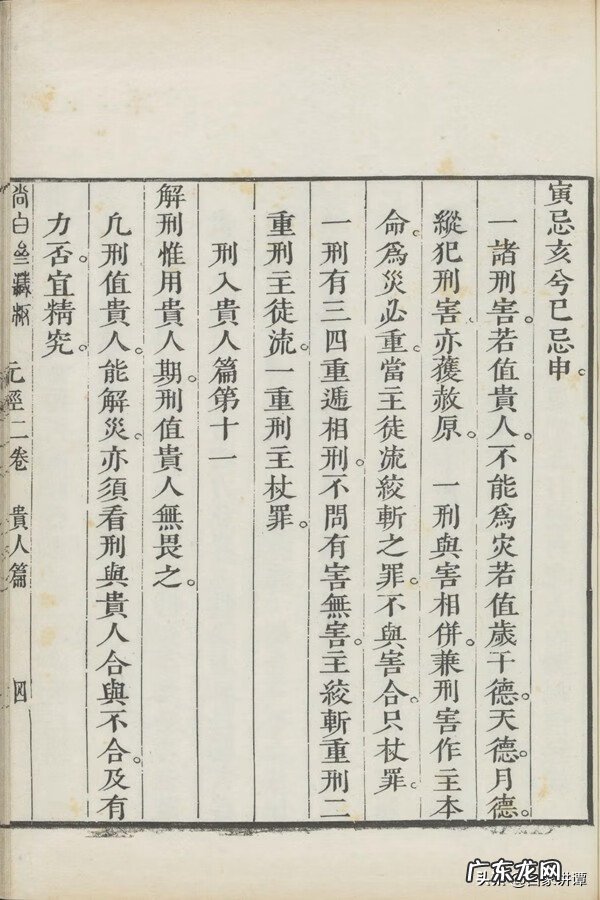 寅忌亥兮巳忌申。
一諸刑害若值貴人。不能爲灾若值歲干德。天德。月德。
縱犯刑害亦獲赦原。 一刑與害相併。兼刑害作主本
命。爲災必重。當主徒流絞斬之罪。不與害合。只杖罪。
一刑有三四重遞相刑。不問有害無害。主絞斬重刑二
重刑主徒流。一重刑主杖罪。
刑入貴人篇第十一
解刑惟用貴人期。刑值貴人無畏之。
凡刑值貴人。能解災。亦須看刑與貴人合與不合。及有
力否宜精究。
尚白 元經二卷 貴人篇 四
广东龙网
头条